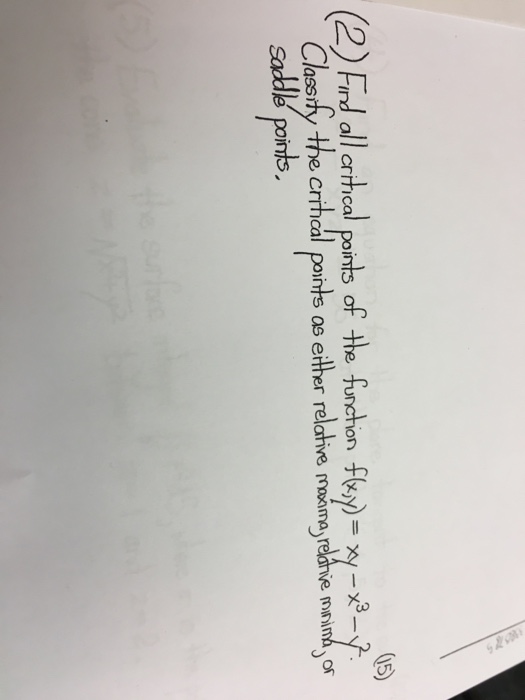 (15)
(2) Find all critical points of the function f(x,y) = xy - x³ - y².
Classify the critical points as either relative maxima, relative minima, or
saddle points.